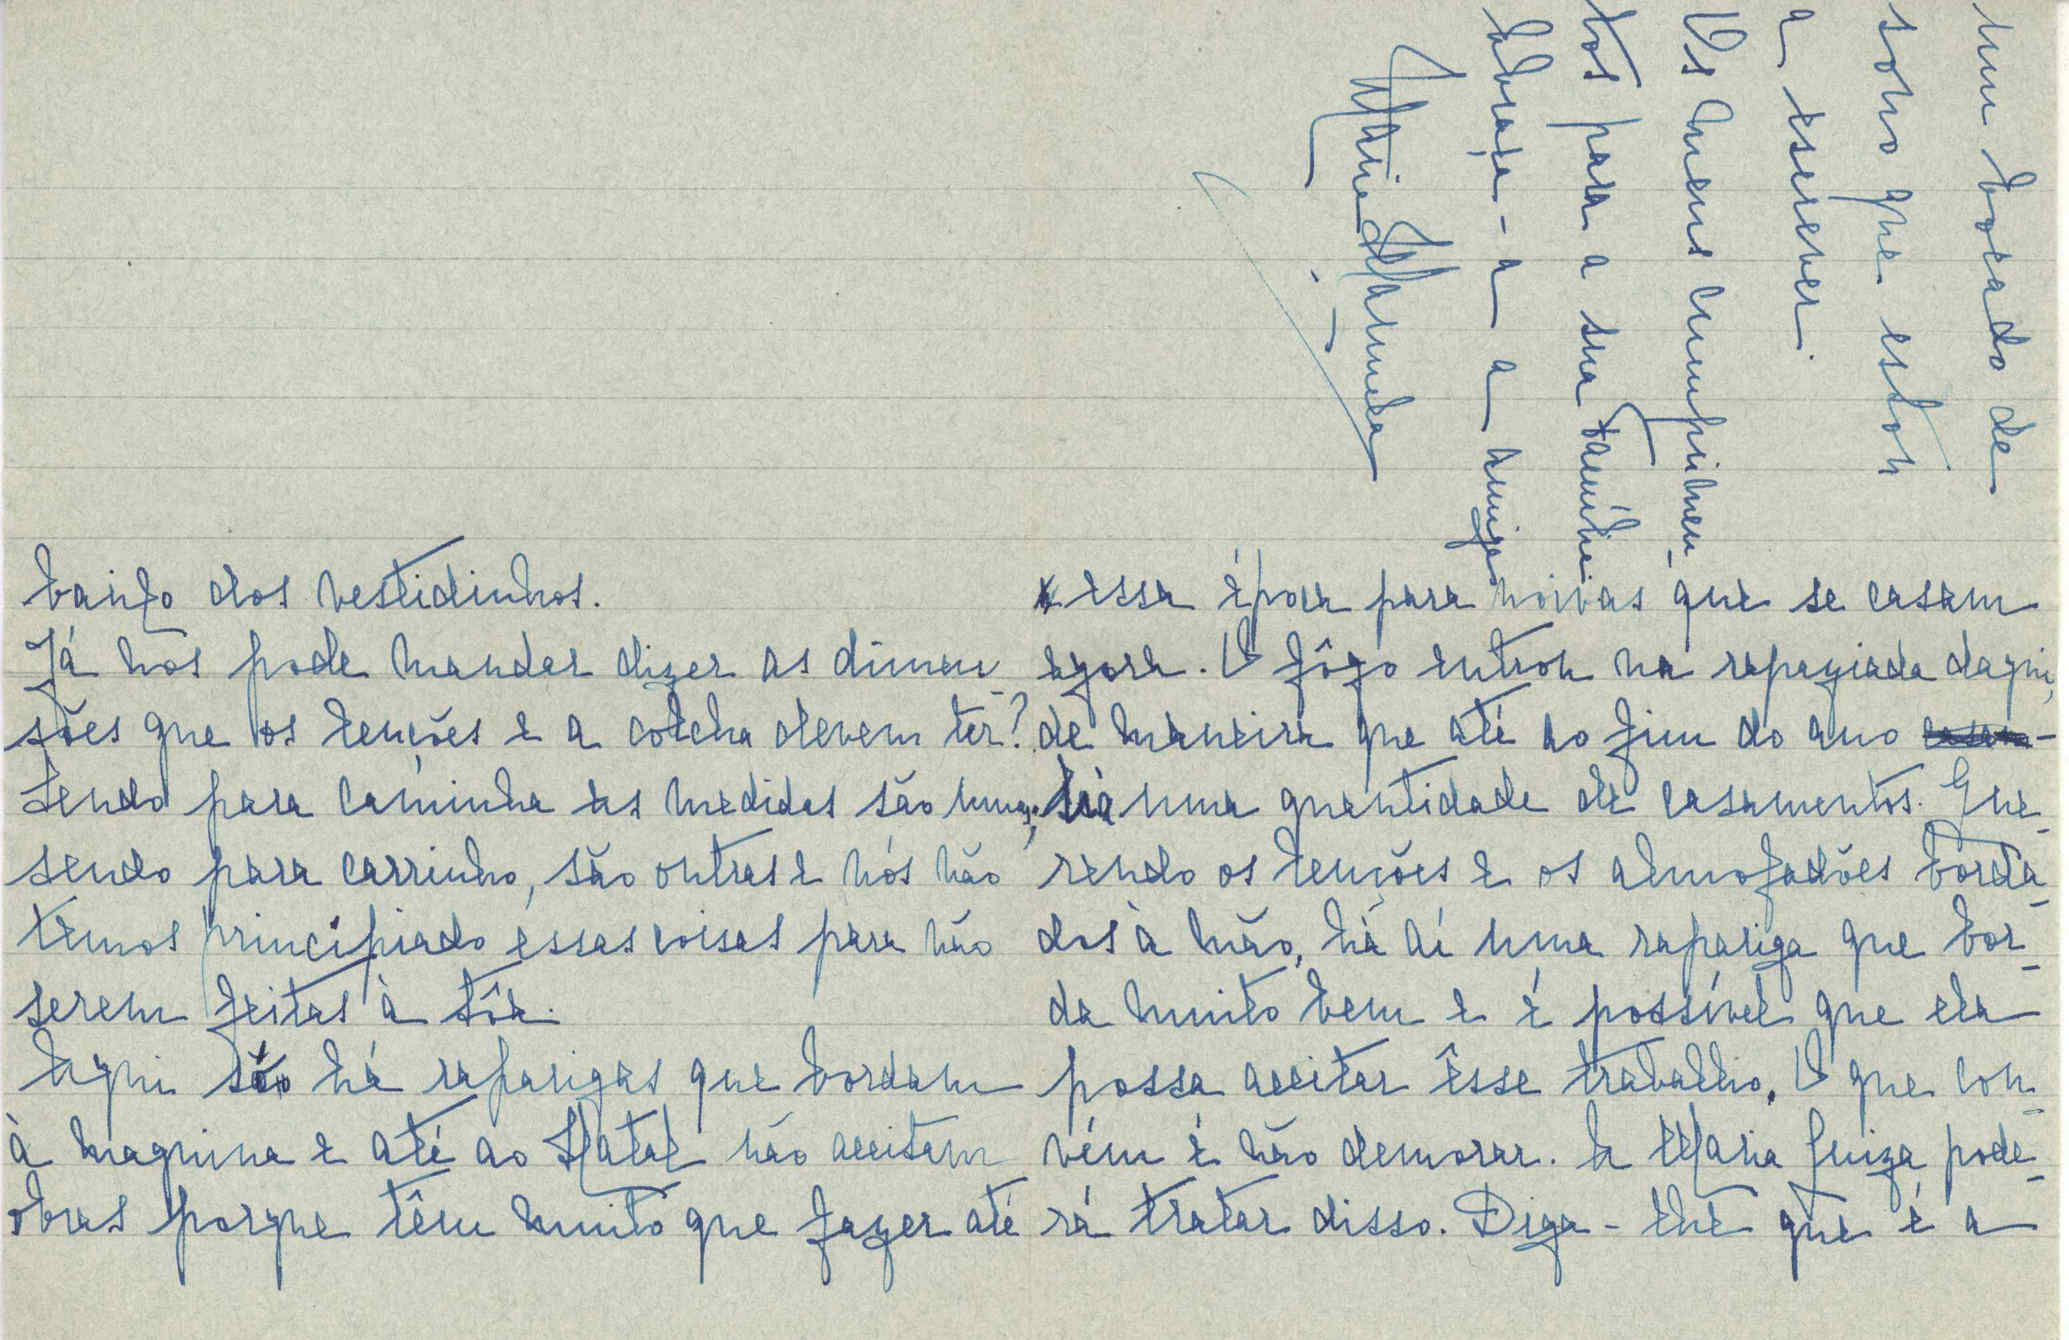 baixo dos vestidinhos.
Já nos pode mandar dizer as dimen-
sões que os lençóes e a colcha devem ter?
Sendo para caminha as medidas são umas;
sendo para carrinho, são outras e nós não
temos principiado essas coisas para não
serem feitas à tôa.
Aqui só há raparigas que bordam
à maquina e até ao Natal não aceitam
obras porque têm muito que fazer até
essa época para noivas que se casam
agora. O fôgo entrou na rapaziada daqui,
de maneira que até ao fim do ano
há uma quantidade de casamentos. Que-
rendo os lençóes e os almofadões borda-
dos à mão, há aí uma rapariga que bor-
da muito bem e é possível que ela
possa aceitar êsse trabalho. O que con-
vém é não demorar. A Maria Luiza pode-
rá tratar disso. Diga-lhe que é a
um bocado de
sono que estou
a escrever.
Os meus cumprimen-
tos para a sua família
abraça-a a amiga
Maria Manuela